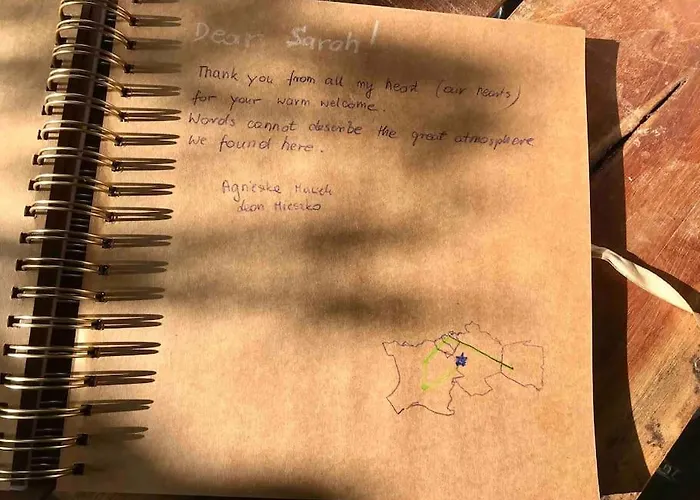 Dear Sarah!
Thank you from all my heart (our hearts)
for your warm welcome.
Words cannot describe the great atmosphere
we found here.
Agnieszka Maciek
Leon Mieszko